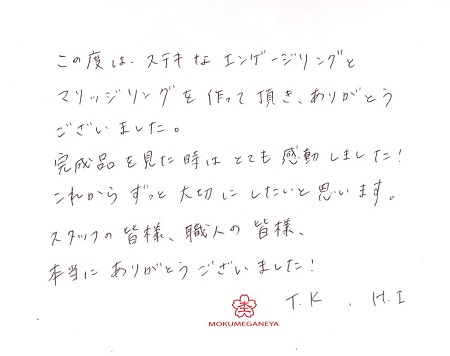 この度は、ステキなエンゲージリングと
マリッジリングを作って頂き、ありがとう
ございました。
完成品を見た時はとても感動しました!
これからずっと大切にしたいと思います。
スタッフの皆様、職人の皆様、
本当にありがとうございました!
T.K 、H.I
MOKUMEGANEYA